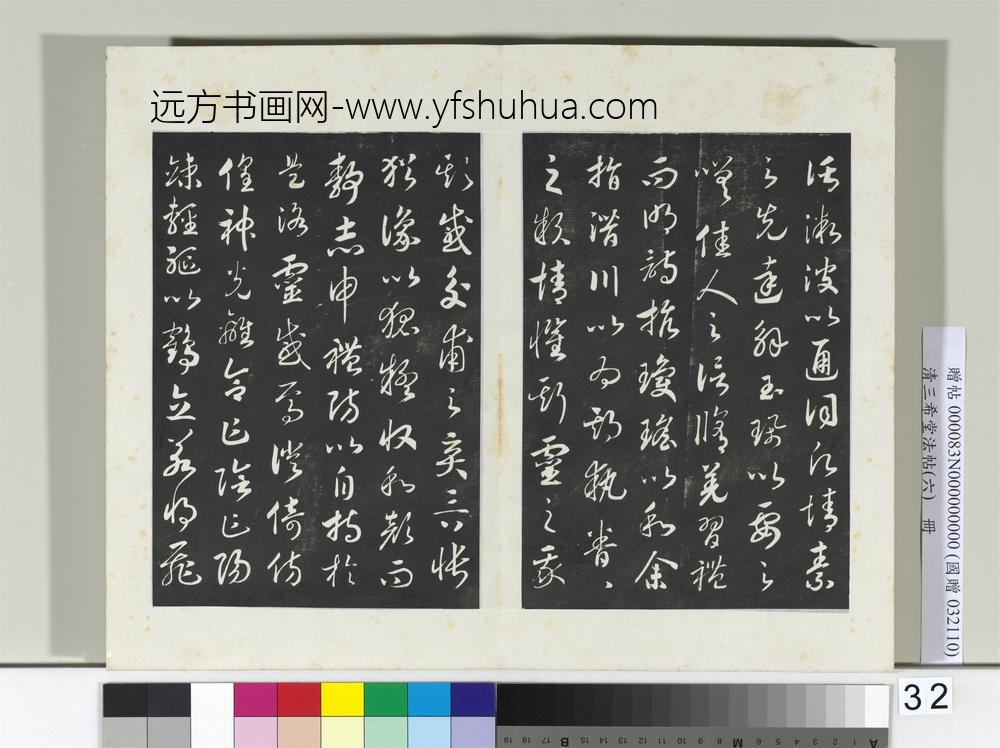 远方书画网-www.yfshuhua.com
託微波以通詞情素
之先達解玉珮以要之
嗟佳人之信脩羌習禮
而明詩抗瓊瑤以和余
指潛川以為期執眷〻
之款情懼斯靈之我
欺感交甫之棄言悵
猶豫以狐疑收和顏而
靜志申禮防以自持於
是洛靈感焉徙倚傍
徨神光離合乍陰乍陽
竦輕軀以鶴立若將飛
贈帖 000083N000000000 (國贈 032110)
清三希堂法帖(六) 冊
32
A 1 2 3 4 5 6 M 8 9 10 11 12 13 14 15 B 17 18 19